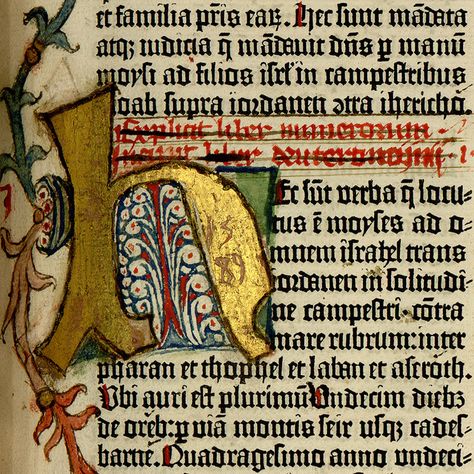 et familia pr̄is eaꝝ. Hec sunt mādata
atqꝫ iudicia q̄ mādavit dn̄s ꝑ manū
moysi ad filios isrl' in campestribus
oab supra iordanen ꝯtra iherichō.
Explicit liber numerorum
Incipit liber deuteronomij
H
Ec sūt verba q̄ locu
tus ē moyses ad o
mnem israhel trans
iordanen in solitudi
ne campestri. cōtra
mare rubrum: inter
pharan et thophel et laban et aseroth.
Ubi auri est plurimū Undecim diebꝫ
de oreb: ꝑ viam montis seir usqꝫ cades-
barne. Quadragesimo anno undeci